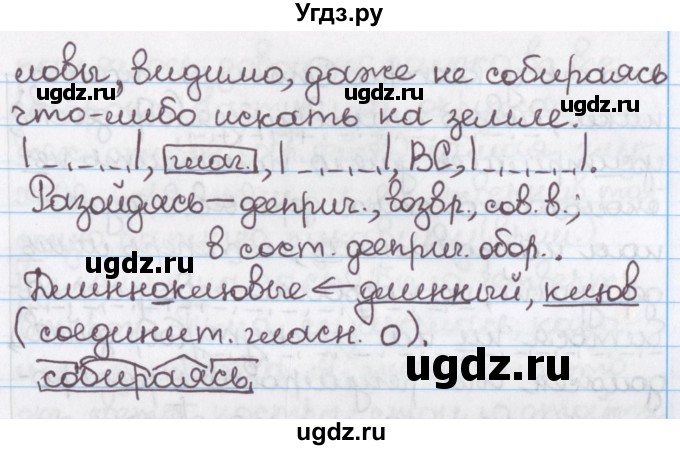 Угdз.ру
ловы, видимо, даже не собираясь
что-либо искать на земле.
|_._._.|, глаг., |_._._.|, ВС, |_._._.|.
Разойдясь – дееприч., возвр., сов.в.,
в сост. дееприч. обор..
Длинноклювые ← длинный, клюв
(соединит. гласн. о).
собираясь
ugdz.ru
ugdz.ru
ugdz.ru
ugdz.ru
ugdz.ru
ugdz.ru
ugdz.ru